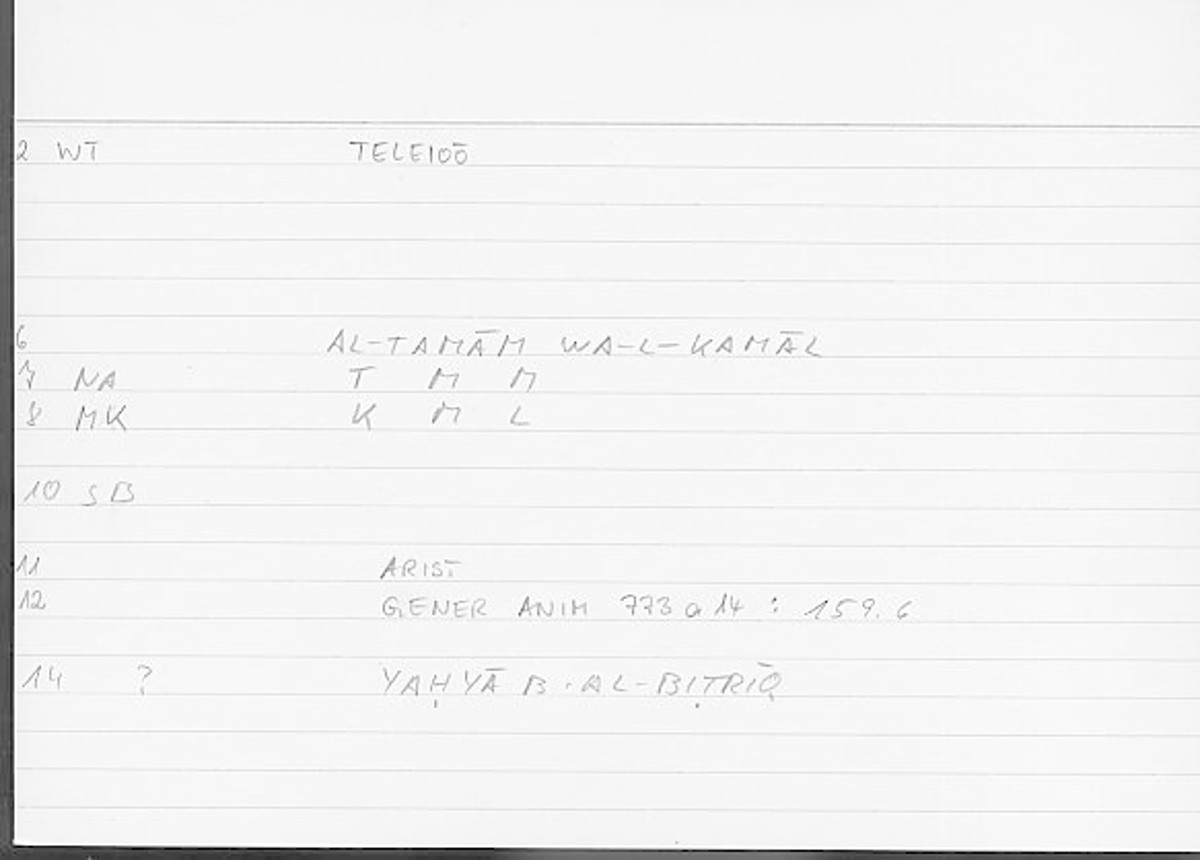 2 WT TELEIOŌ
6 AL-TAMĀM WA-L-KAMĀL
7 NA T M M
8 MK K M L
10 SB
11 ARIST
12 GENER ANIM 773 a 14 : 159.6
14 ? YAḤYĀ B. AL-BIṬRĪQ